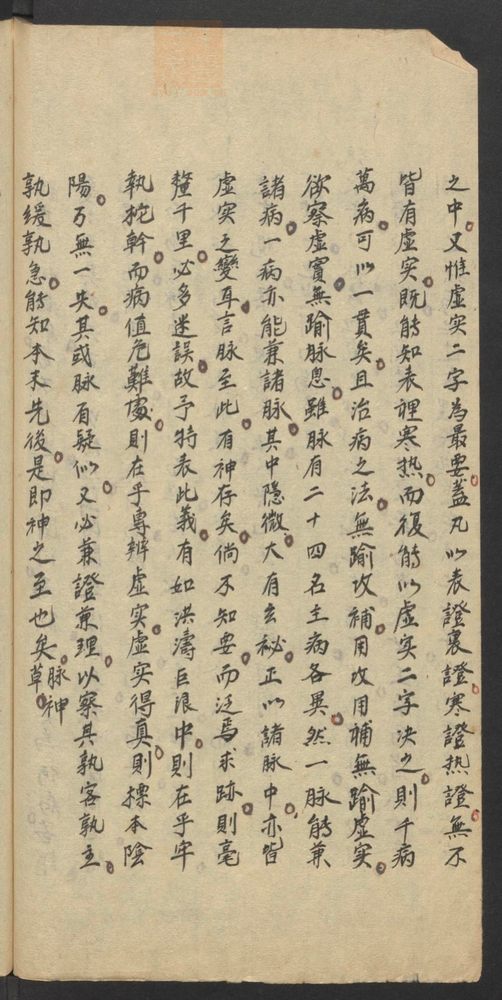 之中又惟虛实二字為最要蓋凡以表證裏證寒證热證無不
皆有虛实既能知表裡寒热而復能以虛实二字决之則千病
萬病可以一貫矣且治病之法無踰攻補用攻用補無踰虛实
欲察虛實無踰脉息雖脉有二十四名主病各異然一脉能兼
諸病一病亦能兼諸脉其中隱微大有玄秘正以諸脉中亦皆
虛实之變耳言脉至此有神存矣倘不知要而泛焉求跡則毫
釐千里必多迷誤故予特表此義有如洪濤巨浪中則在乎牢
執柁幹而病值危難處則在乎專辨虛实虛实得真則摽本陰
陽万無一失其或脉有疑似又必兼證兼理以察其孰客孰主
孰緩孰急能知本末先後是即神之至也矣脉神章